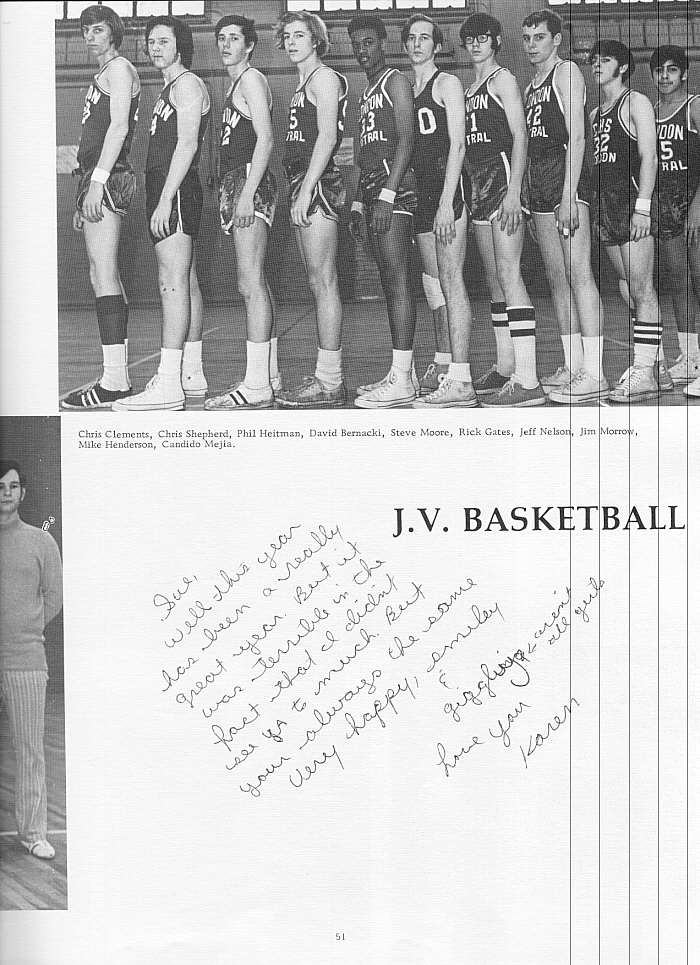 Chris Clements, Chris Shepherd, Phil Heitman, David Bernacki, Steve Moore, Rick Gates, Jeff Nelson, Jim Morrow,
Mike Henderson, Candido Mejia.
J.V. BASKETBALL
Sue,
Well this year
has been a really
great year. But it
was terrible in the
fact that I didn't
see ya to much. But
your always the same
very happy, smiley
&
giggling
aren't
all girls
Love you
Karen
51